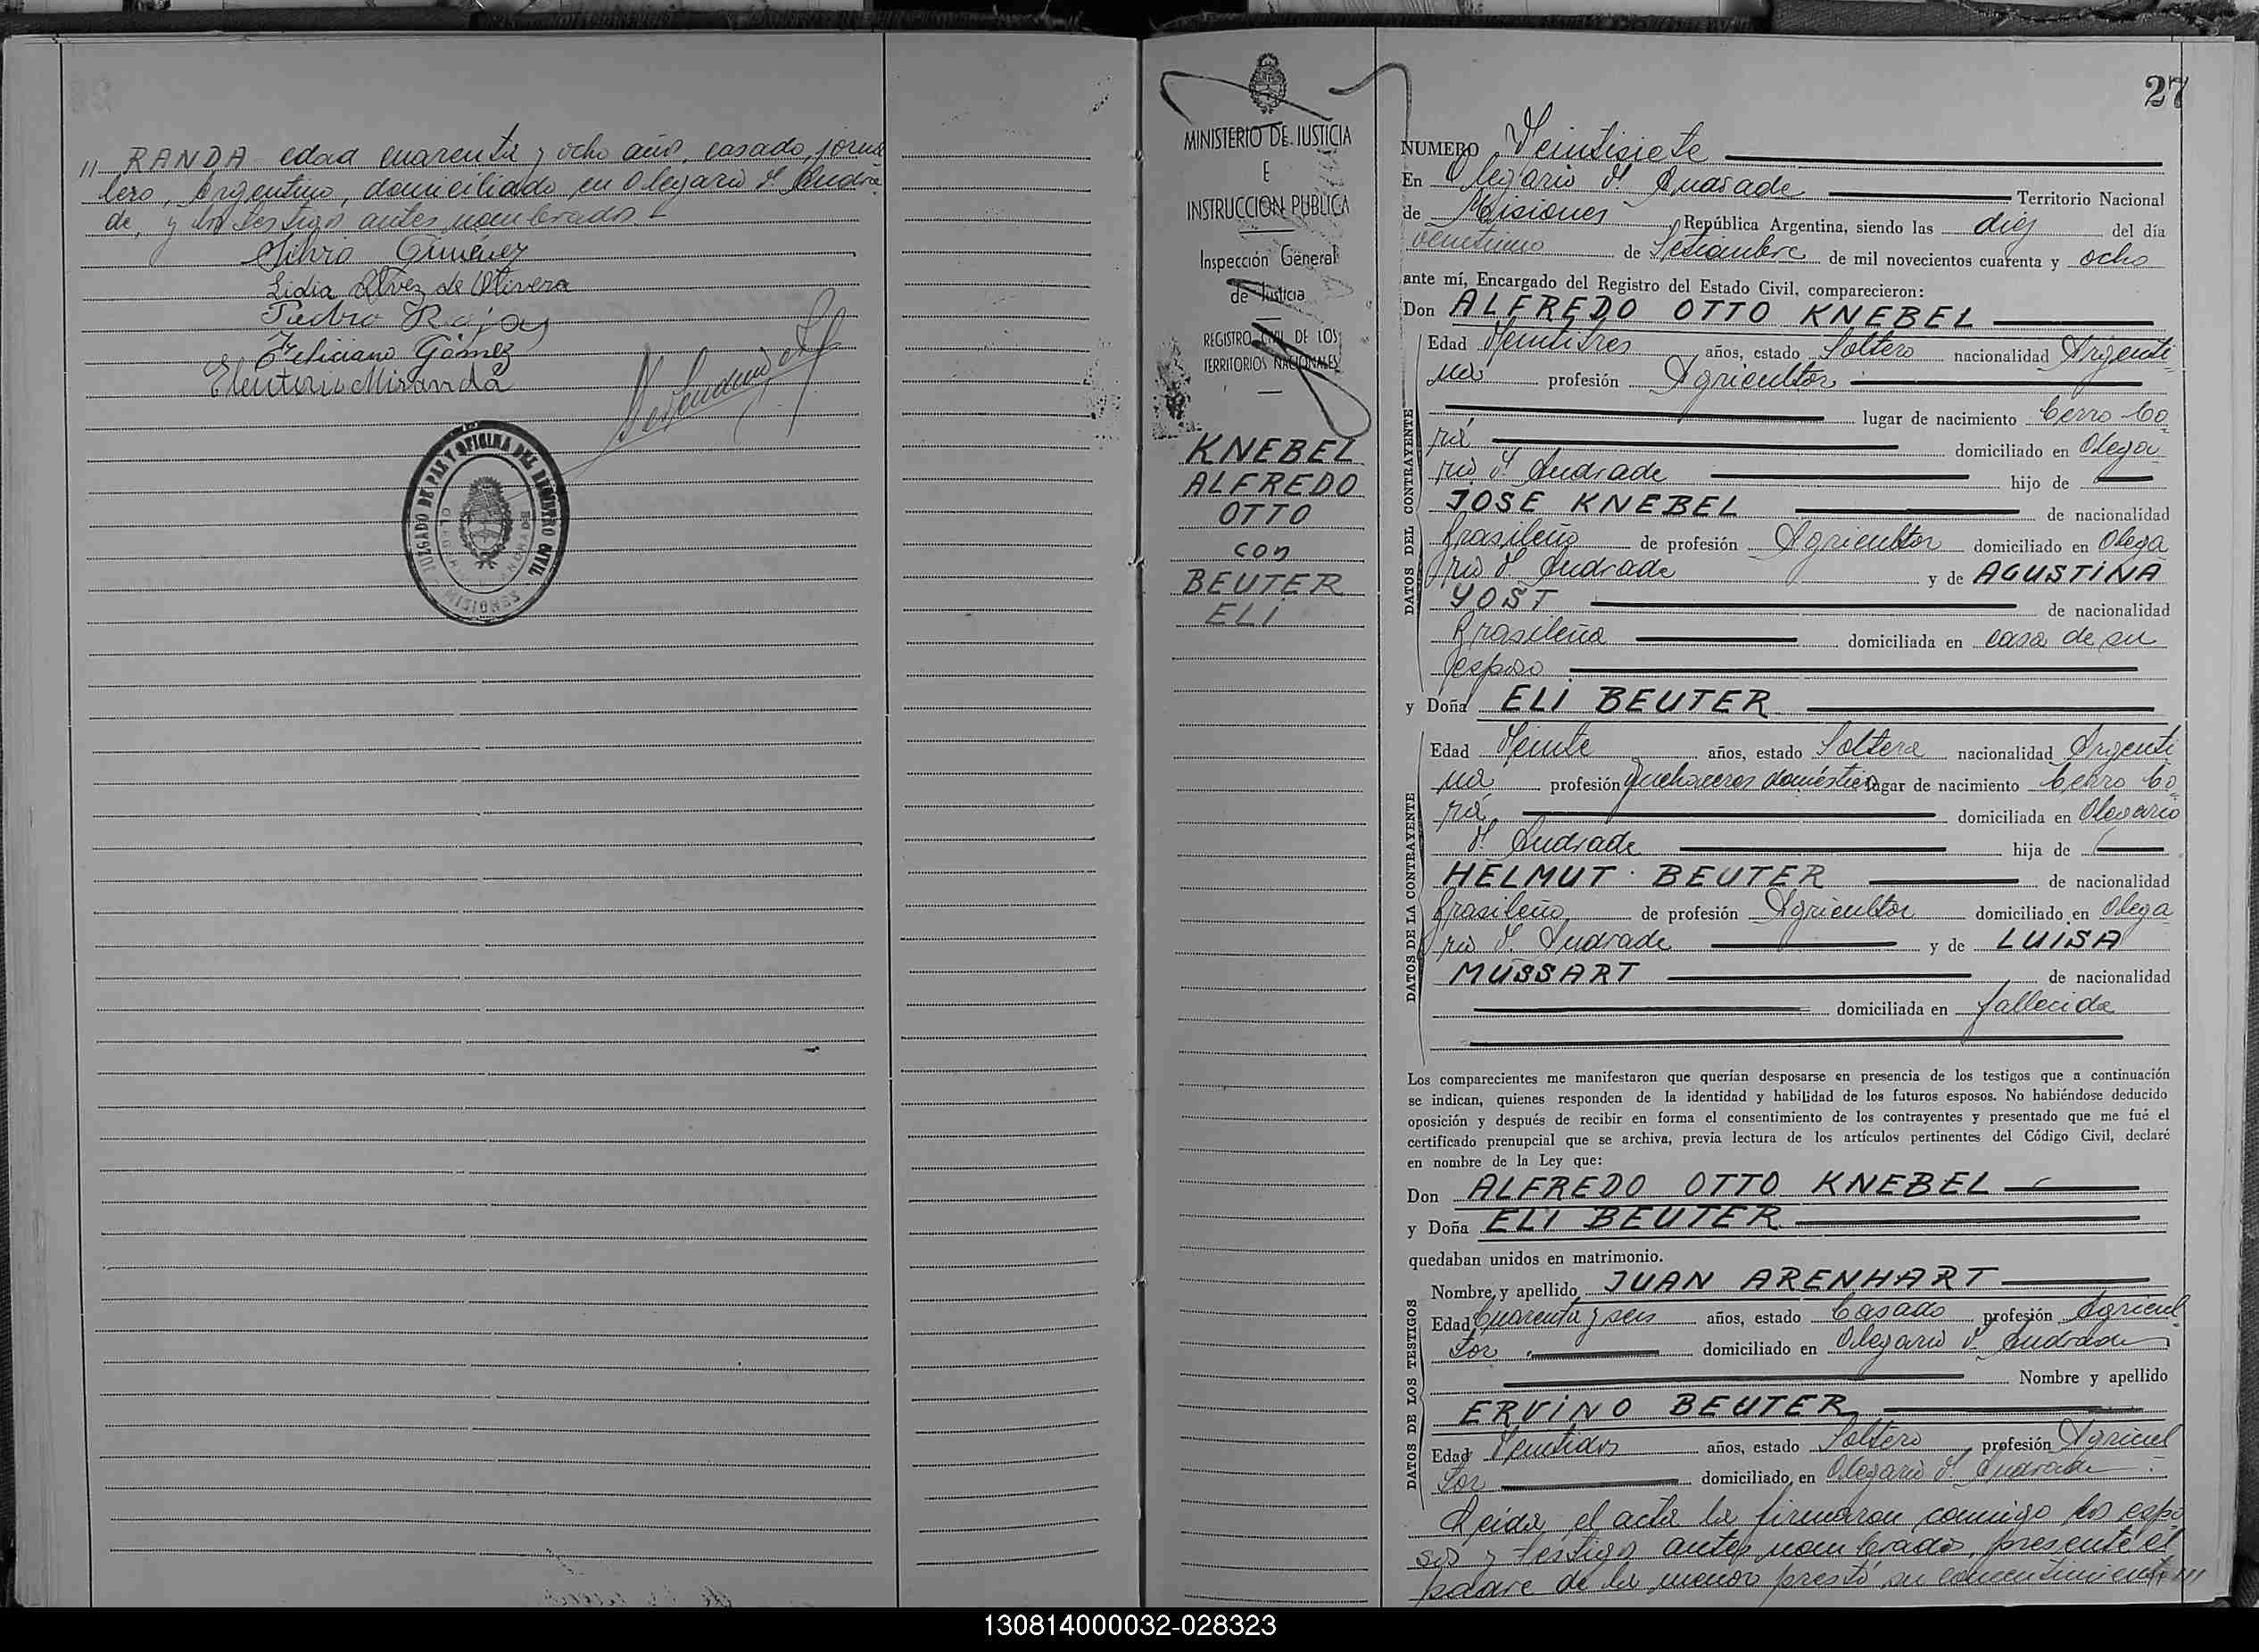 // RANDA edad cuarenta y ocho años, casado, jorna
lero, Argentino, domiciliado en Olegario V. Andra-
de, y los testigos antes nombrados.-
Silvio Gimenez
Lidia Alvez de Olivera
Pedro Rojas
Feliciano Gómez
Eleuterio Miranda
JUZGADO DE PAZ Y OFICINA DEL REGISTRO CIVIL
MISIONES
MINISTERIO DE JUSTICIA
E
INSTRUCCION PUBLICA
Inspección General
de Justicia
REGISTRO CIVIL DE LOS
TERRITORIOS NACIONALES
KNEBEL
ALFREDO
OTTO
con
BEUTER
ELI
27
NUMERO Veintisiete
En Olegario V. Andrade Territorio Nacional
de Misiones República Argentina, siendo las diez del día
veintiuno de Setiembre de mil novecientos cuarenta y ocho
ante mí, Encargado del Registro del Estado Civil, comparecieron:
Don ALFREDO OTTO KNEBEL
DATOS DEL CONTRAYENTE
Edad Veintitres años, estado Soltero nacionalidad Argenti-
na profesión Agricultor
lugar de nacimiento Cerro Co-
rá domiciliado en Olega-
rio V. Andrade hijo de
JOSE KNEBEL de nacionalidad
Brasileño de profesión Agricultor domiciliado en Olega
rio V. Andrade y de AGUSTINA
YOST de nacionalidad
Brasileña domiciliada en casa de su
esposo
y Doña ELI BEUTER
DATOS DE LA CONTRAYENTE
Edad Veinte años, estado Soltera nacionalidad Argenti
na profesión Quehaceres domésticos lugar de nacimiento Cerro Co-
rá domiciliada en Olegario
V. Andrade hija de
HELMUT BEUTER de nacionalidad
Brasileño de profesión Agricultor domiciliado en Olega
rio V. Andrade y de LUISA
MUSSART de nacionalidad
domiciliada en fallecida
Los comparecientes me manifestaron que querían desposarse en presencia de los testigos que a continuación
se indican, quienes responden de la identidad y habilidad de los futuros esposos. No habiéndose deducido
oposición y después de recibir en forma el consentimiento de los contrayentes y presentado que me fué el
certificado prenupcial que se archiva, previa lectura de los artículos pertinentes del Código Civil, declaré
en nombre de la Ley que:
Don ALFREDO OTTO KNEBEL
y Doña ELI BEUTER
quedaban unidos en matrimonio.
DATOS DE LOS TESTIGOS
Nombre y apellido JUAN ARENHART
Edad Cuarenta y seis años, estado Casado profesión Agricul-
tor domiciliado en Olegario V. Andrade
Nombre y apellido
ERVINO BEUTER
Edad Veintidos años, estado Soltero profesión Agricul
tor domiciliado en Olegario V. Andrade
Leida el acta la firmaron conmigo los espo
sos y testigos antes nombrados, presente el
padre de la menor prestó su consentimiento ///
130814000032-028323